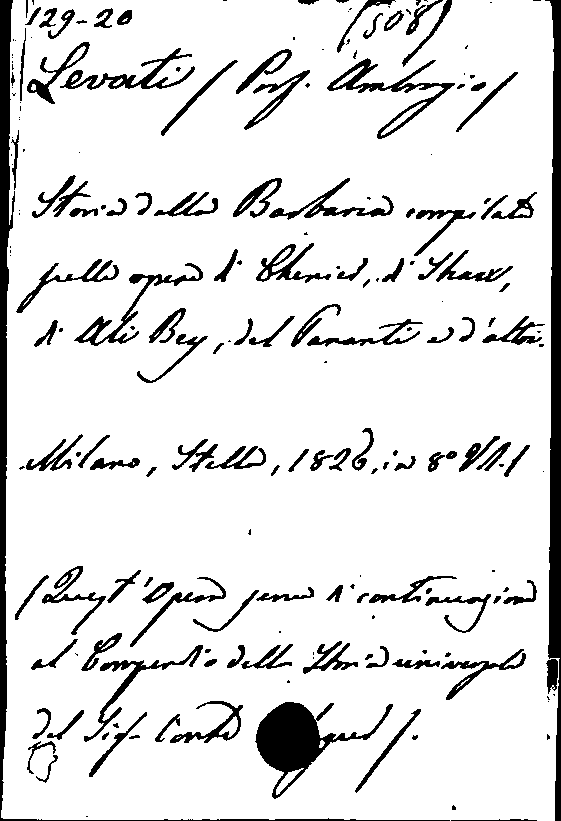 129-20 (508)
Levati / Prof. Ambrogio /
Storia della Barbaria compilata
sulle opere di Chenier, di Shaw,
di Ali Bey, del Pananti e d'altri.
Milano, Stella, 1826, in 8°
/ Quest'Opera serve di continuazione
al Compendio della Storia universale
del Sig. Conte